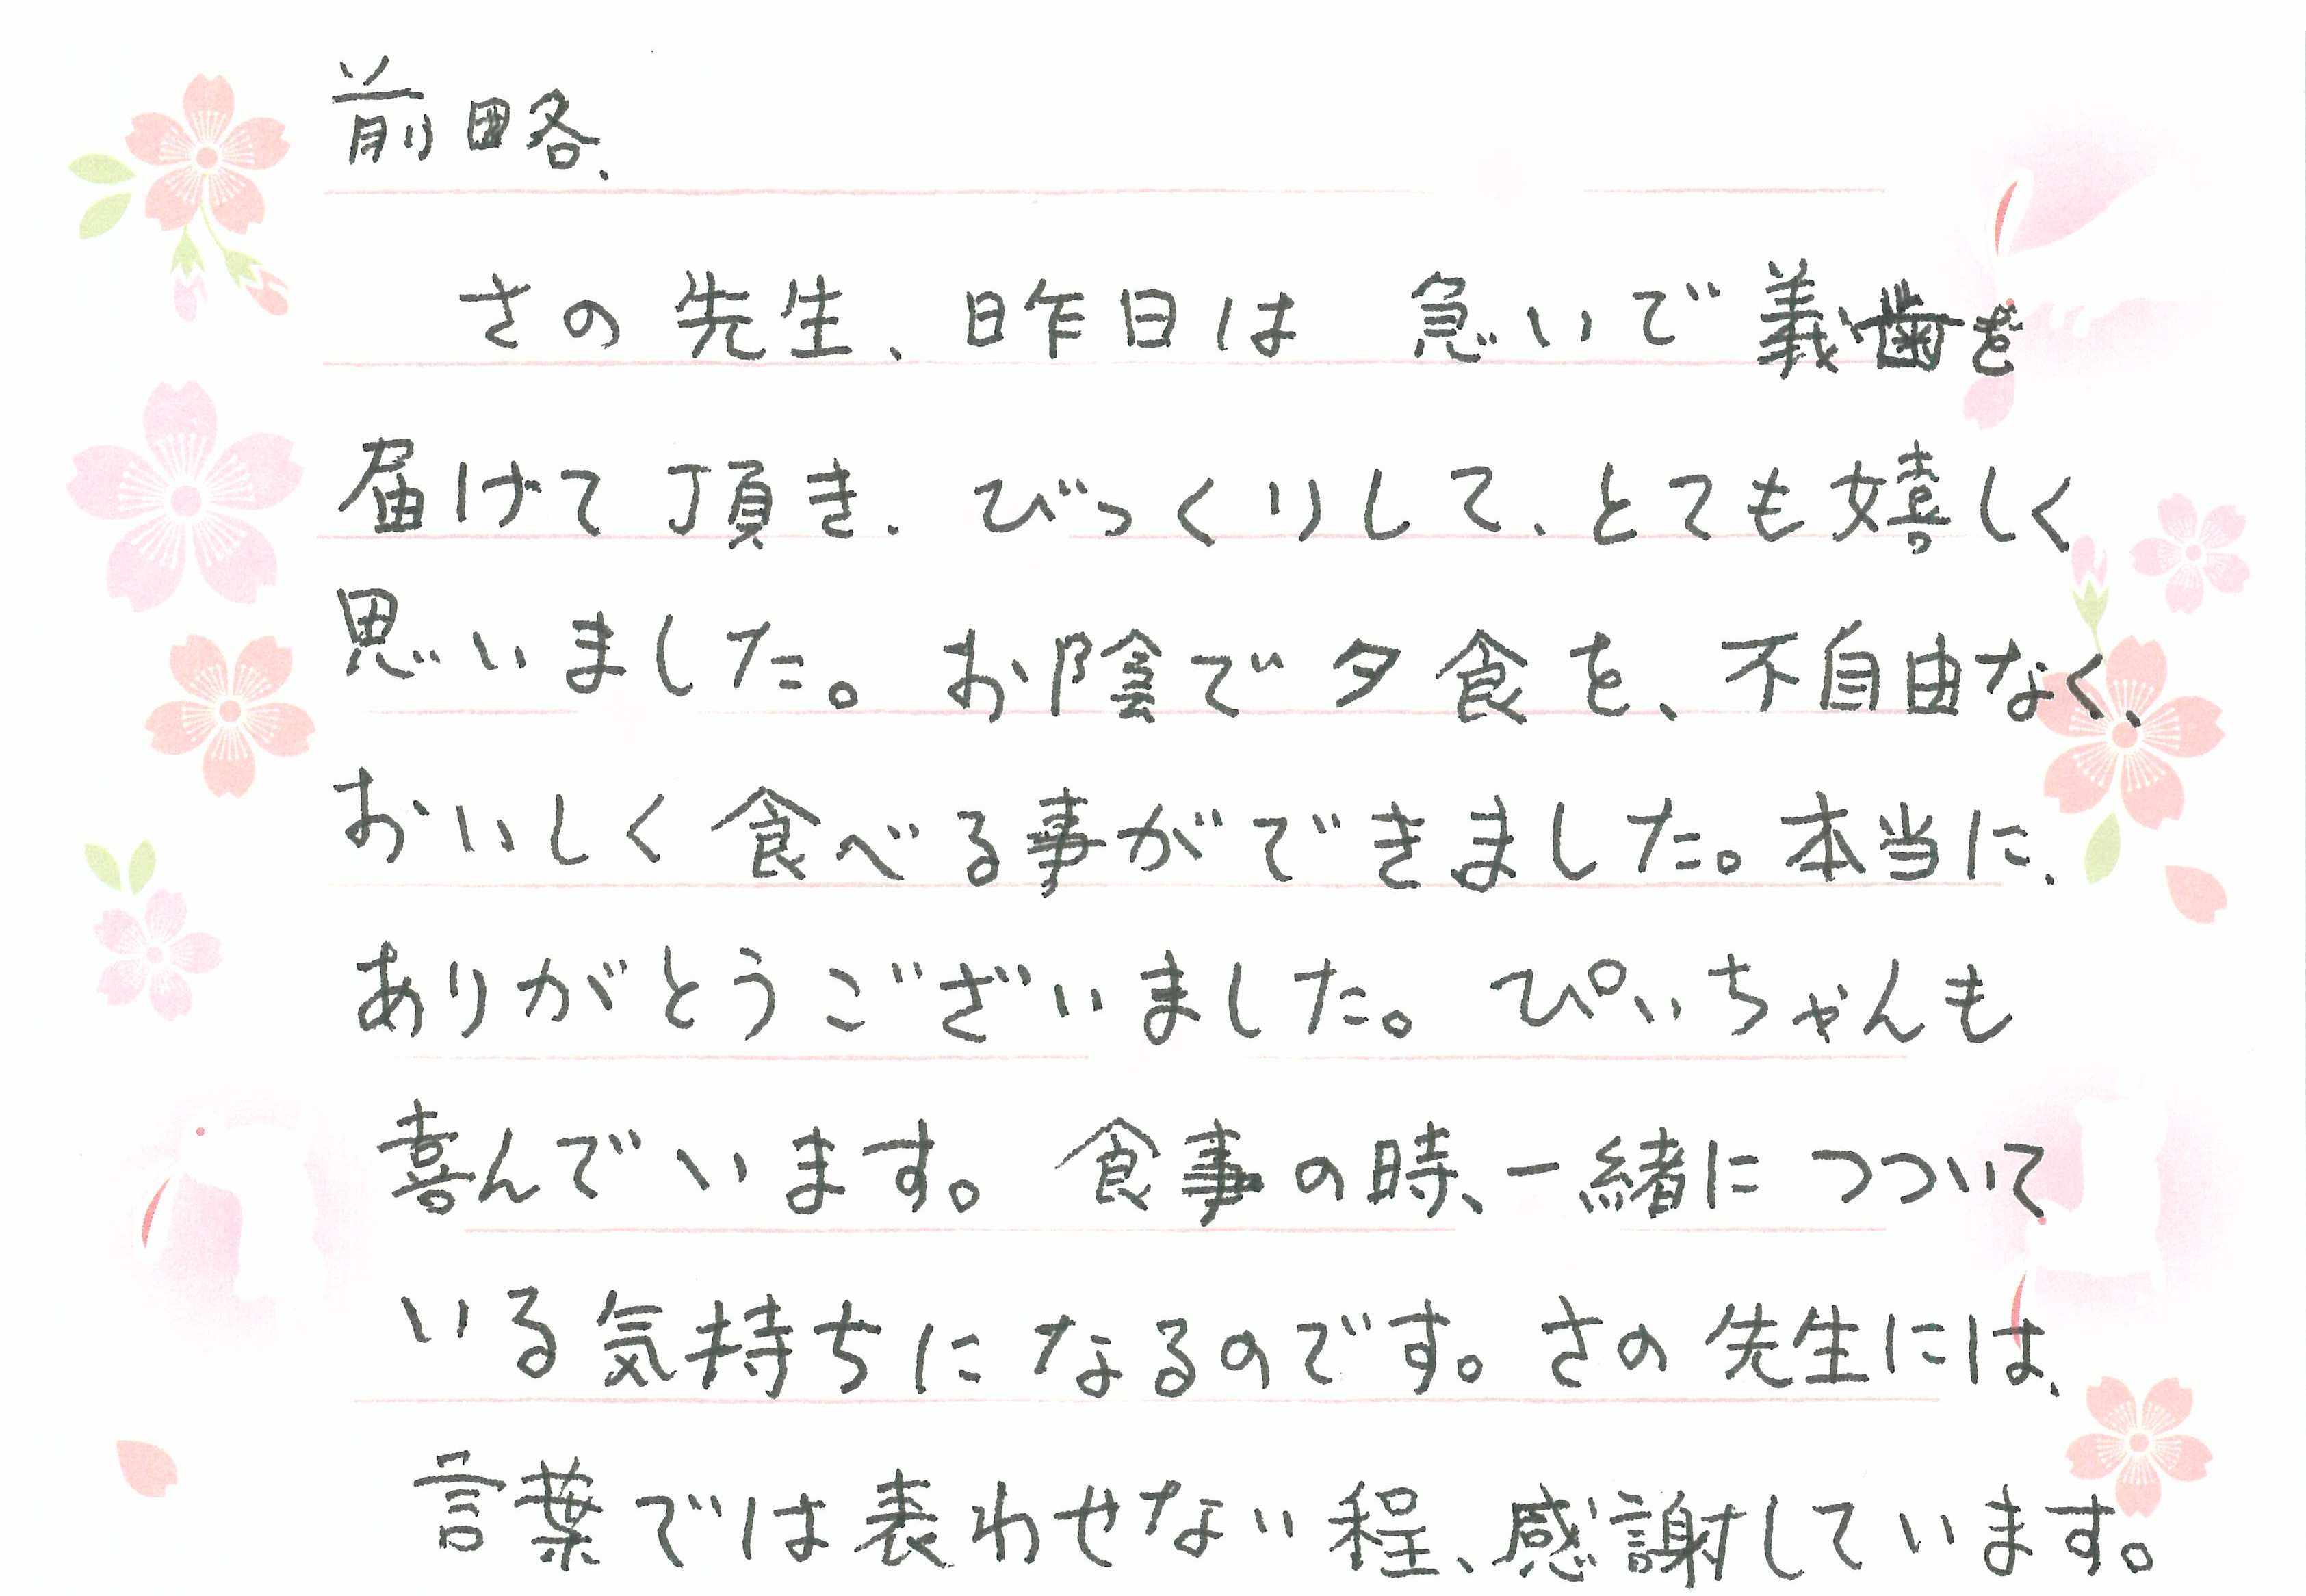 前略、
さの先生、昨日は 急いで義歯を
届けて頂き、びっくりして、とても嬉しく
思いました。お陰で夕食を、不自由なく、
おいしく食べる事ができました。本当に、
ありがとうございました。ぴぃちゃんも
喜んでいます。食事の時、一緒につついて
いる気持ちになるのです。さの先生には、
言葉では表わせない程、感謝しています。